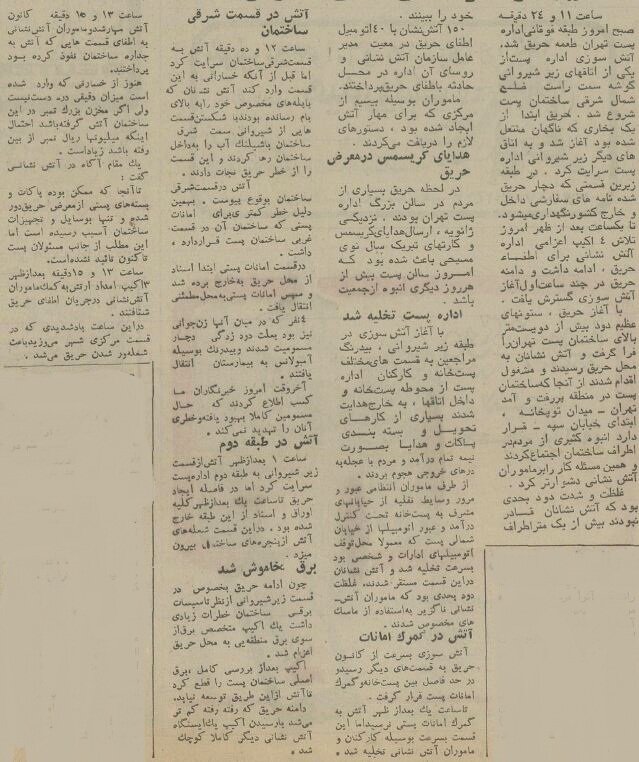 ساعت ۱۱ و ۲۴ دقیقه
صبح امروز طبقه فوقانی اداره
پست تهران طعمه حریق شد.
آتش سوزی اداره پست از
یکی از اتاقهای زیر شیروانی
گوشه سمت راست ضلع
شمال شرقی ساختمان پست
شروع شد. حریق ابتدا از
یک بخاری که ناگهان منتعل
شده بود آغاز شد و به اتاق
های دیگر زیر شیروانی اداره
پست سرایت کرد. در طبقه
زیرین قسمتی که دچار حریق
شده نامه های سفارشی داخل
و خارج کشور نگهداری میشود.
تا یکساعت بعد از ظهر امروز
تلاش ۴ اکیپ اعزامی اداره
آتش نشانی برای اطفاء
حریق، ادامه داشت و دامنه
حریق در چند ساعت اول آغاز
آتش سوزی گسترش یافت.
با آغاز حریق، ستونهای
عظیم دود بیش از دویست متر
بالای ساختمان پست تهران را
فرا گرفت و آتش نشانان به
محل حریق رسیدند و مشغول
اقدام شدند از آنجا که ساختمان
پست در منطقه پررفت و آمد
تهران ـ میدان توپخانه ـ
ابتدای خیابان سپه ـ قرار
دارد انبوه کثیری از مردم در
اطراف ساختمان اجتماع کردند
و همین مسئله کار را بر ماموران
آتش نشانی دشوارتر کرد.
غلظت و شدت دود بحدی
بود که آتش نشانان قادر
نبودند بیش از یک متر اطراف
خود را ببینند.
۱۵۰ آتش‌نشان با ۴۰ اتومبیل
اطفای حریق در معیت مدیر
عامل سازمان آتش نشانی و
روسای آن اداره در محل
حادثه باطفای حریق پرداختند.
ماموران بوسیله بیسیم از
مرکزی که برای مهار آتش
ایجاد شده بود، دستورهای
لازم را دریافت می‌کردند.
هدایای کریسمس در معرض
حریق
در لحظه حریق بسیاری از
مردم در سالن بزرگ اداره
پست تهران بودند. نزدیکی
ژانویه، ارسال هدایای کریسمس
و کارتهای تبریک سال نوی
مسیحی باعث شده بود که
امروز سالن پست بیش از
هر روز دیگری انبوه از جمعیت
باشد.
اداره پست تخلیه شد
با آغاز آتش سوزی در
طبقه زیر شیروانی، بیدرنگ
مراجعین به قسمت های مختلف
پست‌خانه و کارکنان اداره
پست از محوطه پستخانه و
داخل اتاقها، به خارج هدایت
شدند بسیاری از کارهای
تحویل و بسته بندی
پاکات و هدایا بصورت
نیمه تمام درآمد و مردم با عجله به
درهای خروجی هجوم بردند.
از طرف ماموران انتظامی عبور و
مرور وسایط نقلیه از خیابانهای
مشرف به پست‌خانه تحت کنترل
درآمد و عبور اتومبیلها از خیابان
شمالی پست که معمولا محل توقف
اتومبیلهای ادارات و شخصی بود
بسرعت تخلیه شد و آتش نشانان
دراین قسمت مستقر شدند. غلظت
دود بحدی بود که ماموران آتش‌ـ
نشانی ناگزیر به‌استفاده از ماسک
های مخصوص شدند.
آتش در گمرک امانات
آتش سوزی بسرعت از کانون
حریق به قسمت‌های دیگر رسید و
در حد فاصل بین پست‌خانه و گمرک
امانات پست قرار گرفت.
تاساعت یک بعداز ظهر آتش به
گمرک امانات پستی نرسید اما این
قسمت بسرعت بوسیله کارکنان و
ماموران آتش نشانی تخلیه شد.
آتش در قسمت شرقی
ساختمان
ساعت ۱۲ و ده دقیقه آتش به
قسمت شرقی ساختمان سرایت کرد
اما قبل از آنکه خساراتی به این
قسمت وارد کند آتش نشانان که
باپله‌های مخصوص خود رابه بالای
بام رسانده بودند با شکستن قسمت
هایی از شیروانی سمت شرق
ساختمان باشیلنگ آب را به‌داخل
ساختمان رها کردند و این قسمت
را از خطر حریق نجات دادند.
آتش درقسمت شرقی
ساختمان بوقوع پیوست. بهمین
دلیل خطر کمتری برای امانات
پستی که ساختمان آن در قسمت
غربی ساختمان پست قرار دارد،
داشت.
در قسمت امانات پستی ابتدا اسناد
از محل حریق به‌خارج برده شد
و سپس امانات پستی به محل مطمئنی
انتقال یافت.
۴ نفر که در میان آنها زن جوانی
نیز بود بعلت دود زدگی دچار
مسمومیت شدند و بیدرنگ بوسیله
آمبولانس به بیمارستان انتقال
یافتند.
آخر وقت امروز خبرنگاران ما
کسب اطلاع کردند که حال
مسمومین کاملا بهبود یافته و خطری
آنان را تهدید نمی‌کند.
آتش در طبقه دوم
ساعت ۱ بعداز ظهر آتش از قسمت
زیر شیروانی به طبقه دوم اداره پست
سرایت کرد اما در فاصله ایجاد
حریق تاساعت یک بعداز ظهر کلیه
اوراق و اسناد از این طبقه خارج
شده بود. دراین قسمت شعله‌های
آتش از پنجره‌های ساختمان بیرون
میزد.
برق خاموش شد
چون ادامه حریق بخصوص در
قسمت زیرشیروانی ازنظر تاسیسات
برقی ساختمان خطرات زیادی
داشت یک اکیپ متخصص برق از
سوی برق منطقه‌یی به محل حریق
اعزام شد.
اکیپ بعداز بررسی کامل، برق
اصلی ساختمان پست را قطع کرد
تا آتش ازاین طریق توسعه نیابد.
دامنه حریق که رفته رفته کم تر
می‌شد بارسیدن اکیپ یک ایستگاه
آتش نشانی دیگر کاملا کوچک
شد.
ساعت ۱۳ و ۱۵ دقیقه کانون
آتش مهار شد و ماموران آتش نشانی
به اطفای قسمت هایی که آتش به
جداره ساختمان نفوذ کرده بود
پرداختند.
هنوز از خسارتی که وارد شده
است میزان دقیقی در دست نیست
ولی اگر مخزن بزرگ تمبر در این
ساختمان آتش گرفته باشد احتمال
اینکه میلیونها ریال تمبر از بین
رفته باشد زیاد است.
یک مقام آگاه در آتش نشانی
گفت:
تا آنجا که ممکن بوده پاکات و
بسته‌های پستی از معرض حریق دور
شده و تنها بوسایل و تجهیزات
ساختمان آسیب رسیده است اما
این مطلب از جانب مسئولان پست
تاکنون تائید نشده است.
ساعت ۱۳ و ۱۵ دقیقه بعدازظهر
۳ اکیپ امداد ارتش به کمک ماموران
آتش نشانی درجریان اطفای حریق
شتافتند.
دراین ساعت باد شدیدی که در
قسمت مرکزی شهر می‌وزید باعث
شعله‌ور شدن حریق می‌شد.